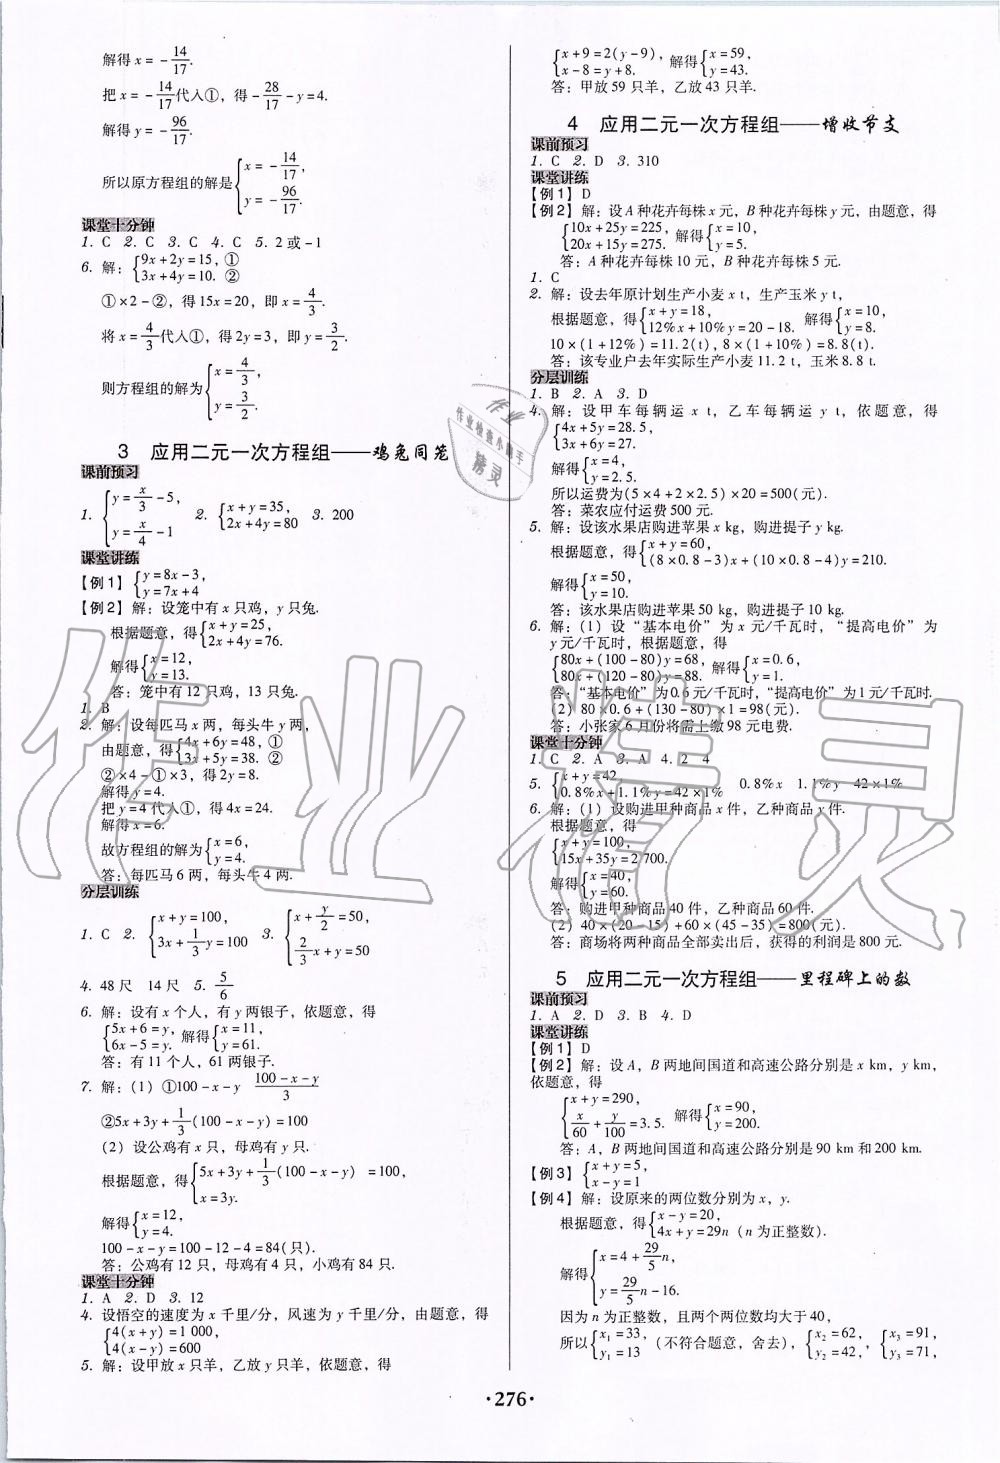 解得 x = -14/17.
把 x = -14/17 代入①, 得 -28/17 - y = 4.
解得 y = -96/17.
所以原方程组的解是 { x = -14/17, y = -96/17.
课堂十分钟
1. C 2. C 3. C 4. C 5. 2 或 -1
6. 解: { 9x + 2y = 15, ① 3x + 4y = 10. ②
① × 2 - ②, 得 15x = 20, 即 x = 4/3.
将 x = 4/3 代入①, 得 2y = 3, 即 y = 3/2.
则方程组的解为 { x = 4/3, y = 3/2.
3 应用二元一次方程组——鸡兔同笼
课前预习
1. { y = x/3 - 5, y = x/4 - 1 2. { x + y = 35, 2x + 4y = 80 3. 200
课堂讲练
【例1】 { y = 8x - 3, y = 7x + 4
【例2】解: 设笼中有 x 只鸡, y 只兔.
根据题意, 得 { x + y = 25, 2x + 4y = 76.
解得 { x = 12, y = 13.
答: 笼中有 12 只鸡, 13 只兔.
1. B
2. 解: 设每匹马 x 两, 每头牛 y 两,
由题意, 得 { 4x + 6y = 48, ① 3x + 5y = 38. ②
② × 4 - ① × 3, 得 2y = 8.
解得 y = 4.
把 y = 4 代入①, 得 4x = 24.
解得 x = 6.
故方程组的解为 { x = 6, y = 4.
答: 每匹马 6 两, 每头牛 4 两.
分层训练
1. C 2. { x + y = 100, 3x + 1/3 y = 100 3. { x + y/2 = 50, 2/3 x + y = 50
4. 48 尺 14 尺 5. 5/6
6. 解: 设有 x 个人, 有 y 两银子, 依题意, 得
{ 5x + 6 = y, 6x - 5 = y. 解得 { x = 11, y = 61.
答: 有 11 个人, 61 两银子.
7. 解: (1) ①100 - x - y (100 - x - y)/3
②5x + 3y + 1/3 (100 - x - y) = 100
(2) 设公鸡有 x 只, 母鸡有 y 只.
根据题意, 得 { 5x + 3y + 1/3 (100 - x - y) = 100, x = 3y.
解得 { x = 12, y = 4.
100 - x - y = 100 - 12 - 4 = 84(只).
答: 公鸡有 12 只, 母鸡有 4 只, 小鸡有 84 只.
课堂十分钟
1. A 2. D 3. 12
4. 设悟空的速度为 x 千里/分, 风速为 y 千里/分, 由题意, 得
{ 4(x + y) = 1 000, 4(x - y) = 600
5. 解: 设甲放 x 只羊, 乙放 y 只羊, 依题意, 得
{ x + 9 = 2(y - 9), x - 8 = y + 8. 解得 { x = 59, y = 43.
答: 甲放 59 只羊, 乙放 43 只羊.
4 应用二元一次方程组——增收节支
课前预习
1. C 2. D 3. 310
课堂讲练
【例1】D
【例2】解: 设 A 种花卉每株 x 元, B 种花卉每株 y 元, 由题意, 得
{ 10x + 25y = 225, 20x + 15y = 275. 解得 { x = 10, y = 5.
答: A 种花卉每株 10 元, B 种花卉每株 5 元.
1. C
2. 解: 设去年原计划生产小麦 x t, 生产玉米 y t,
根据题意, 得 { x + y = 18, 12% x + 10% y = 20 - 18. 解得 { x = 10, y = 8.
10 × (1 + 12%) = 11.2(t), 8 × (1 + 10%) = 8.8(t).
答: 该专业户去年实际生产小麦 11.2 t, 玉米 8.8 t.
分层训练
1. B 2. A 3. D
4. 解: 设甲车每辆运 x t, 乙车每辆运 y t, 依题意, 得
{ 4x + 5y = 28.5, 3x + 6y = 27.
解得 { x = 4, y = 2.5.
所以运费为 (5 × 4 + 2 × 2.5) × 20 = 500(元).
答: 菜农应付运费 500 元.
5. 解: 设该水果店购进苹果 x kg, 购进提子 y kg.
根据题意, 得 { x + y = 60, (8 × 0.8 - 3)x + (10 × 0.8 - 4)y = 210.
解得 { x = 50, y = 10.
答: 该水果店购进苹果 50 kg, 购进提子 10 kg.
6. 解: (1) 设 “基本电价” 为 x 元/千瓦时, “提高电价” 为
y 元/千瓦时, 根据题意, 得
{ 80x + (100 - 80)y = 68, 80x + (120 - 80)y = 88. 解得 { x = 0.6, y = 1.
答: “基本电价” 为 0.6 元/千瓦时, “提高电价” 为 1 元/千瓦时.
(2) 80 × 0.6 + (130 - 80) × 1 = 98(元).
答: 小张家 6 月份将需上缴 98 元电费.
课堂十分钟
1. C 2. A 3. A 4. 2 4
5. { x + y = 42 0.8% x + 1.1% y = 42 × 1% 0.8% x 1.1% y 42 × 1%
6. 解: (1) 设购进甲种商品 x 件, 乙种商品 y 件.
根据题意, 得
{ x + y = 100, 15x + 35y = 2 700.
解得 { x = 40, y = 60.
答: 购进甲种商品 40 件, 乙种商品 60 件.
(2) 40 × (20 - 15) + 60 × (45 - 35) = 800(元).
答: 商场将两种商品全部卖出后, 获得的利润是 800 元.
5 应用二元一次方程组——里程碑上的数
课前预习
1. A 2. D 3. B 4. D
课堂讲练
【例1】D
【例2】解: 设 A, B 两地间国道和高速公路分别是 x km, y km,
依题意, 得
{ x + y = 290, x/60 + y/100 = 3.5. 解得 { x = 90, y = 200.
答: A, B 两地间国道和高速公路分别是 90 km 和 200 km.
【例3】 { x + y = 5, x - y = 1
【例4】解: 设原来的两位数分别为 x, y.
根据题意, 得 { x - y = 20, 4x + y = 29n (n 为正整数).
解得 { x = 4 + 29/5 n, y = 29/5 n - 16.
因为 n 为正整数, 且两个两位数均大于 40,
所以 { x₁ = 33, y₁ = 13 (不符合题意, 舍去), { x₂ = 62, y₂ = 42, { x₃ = 91, y₃ = 71,
·276·
作业精灵
作业
作业检查小助手
精灵